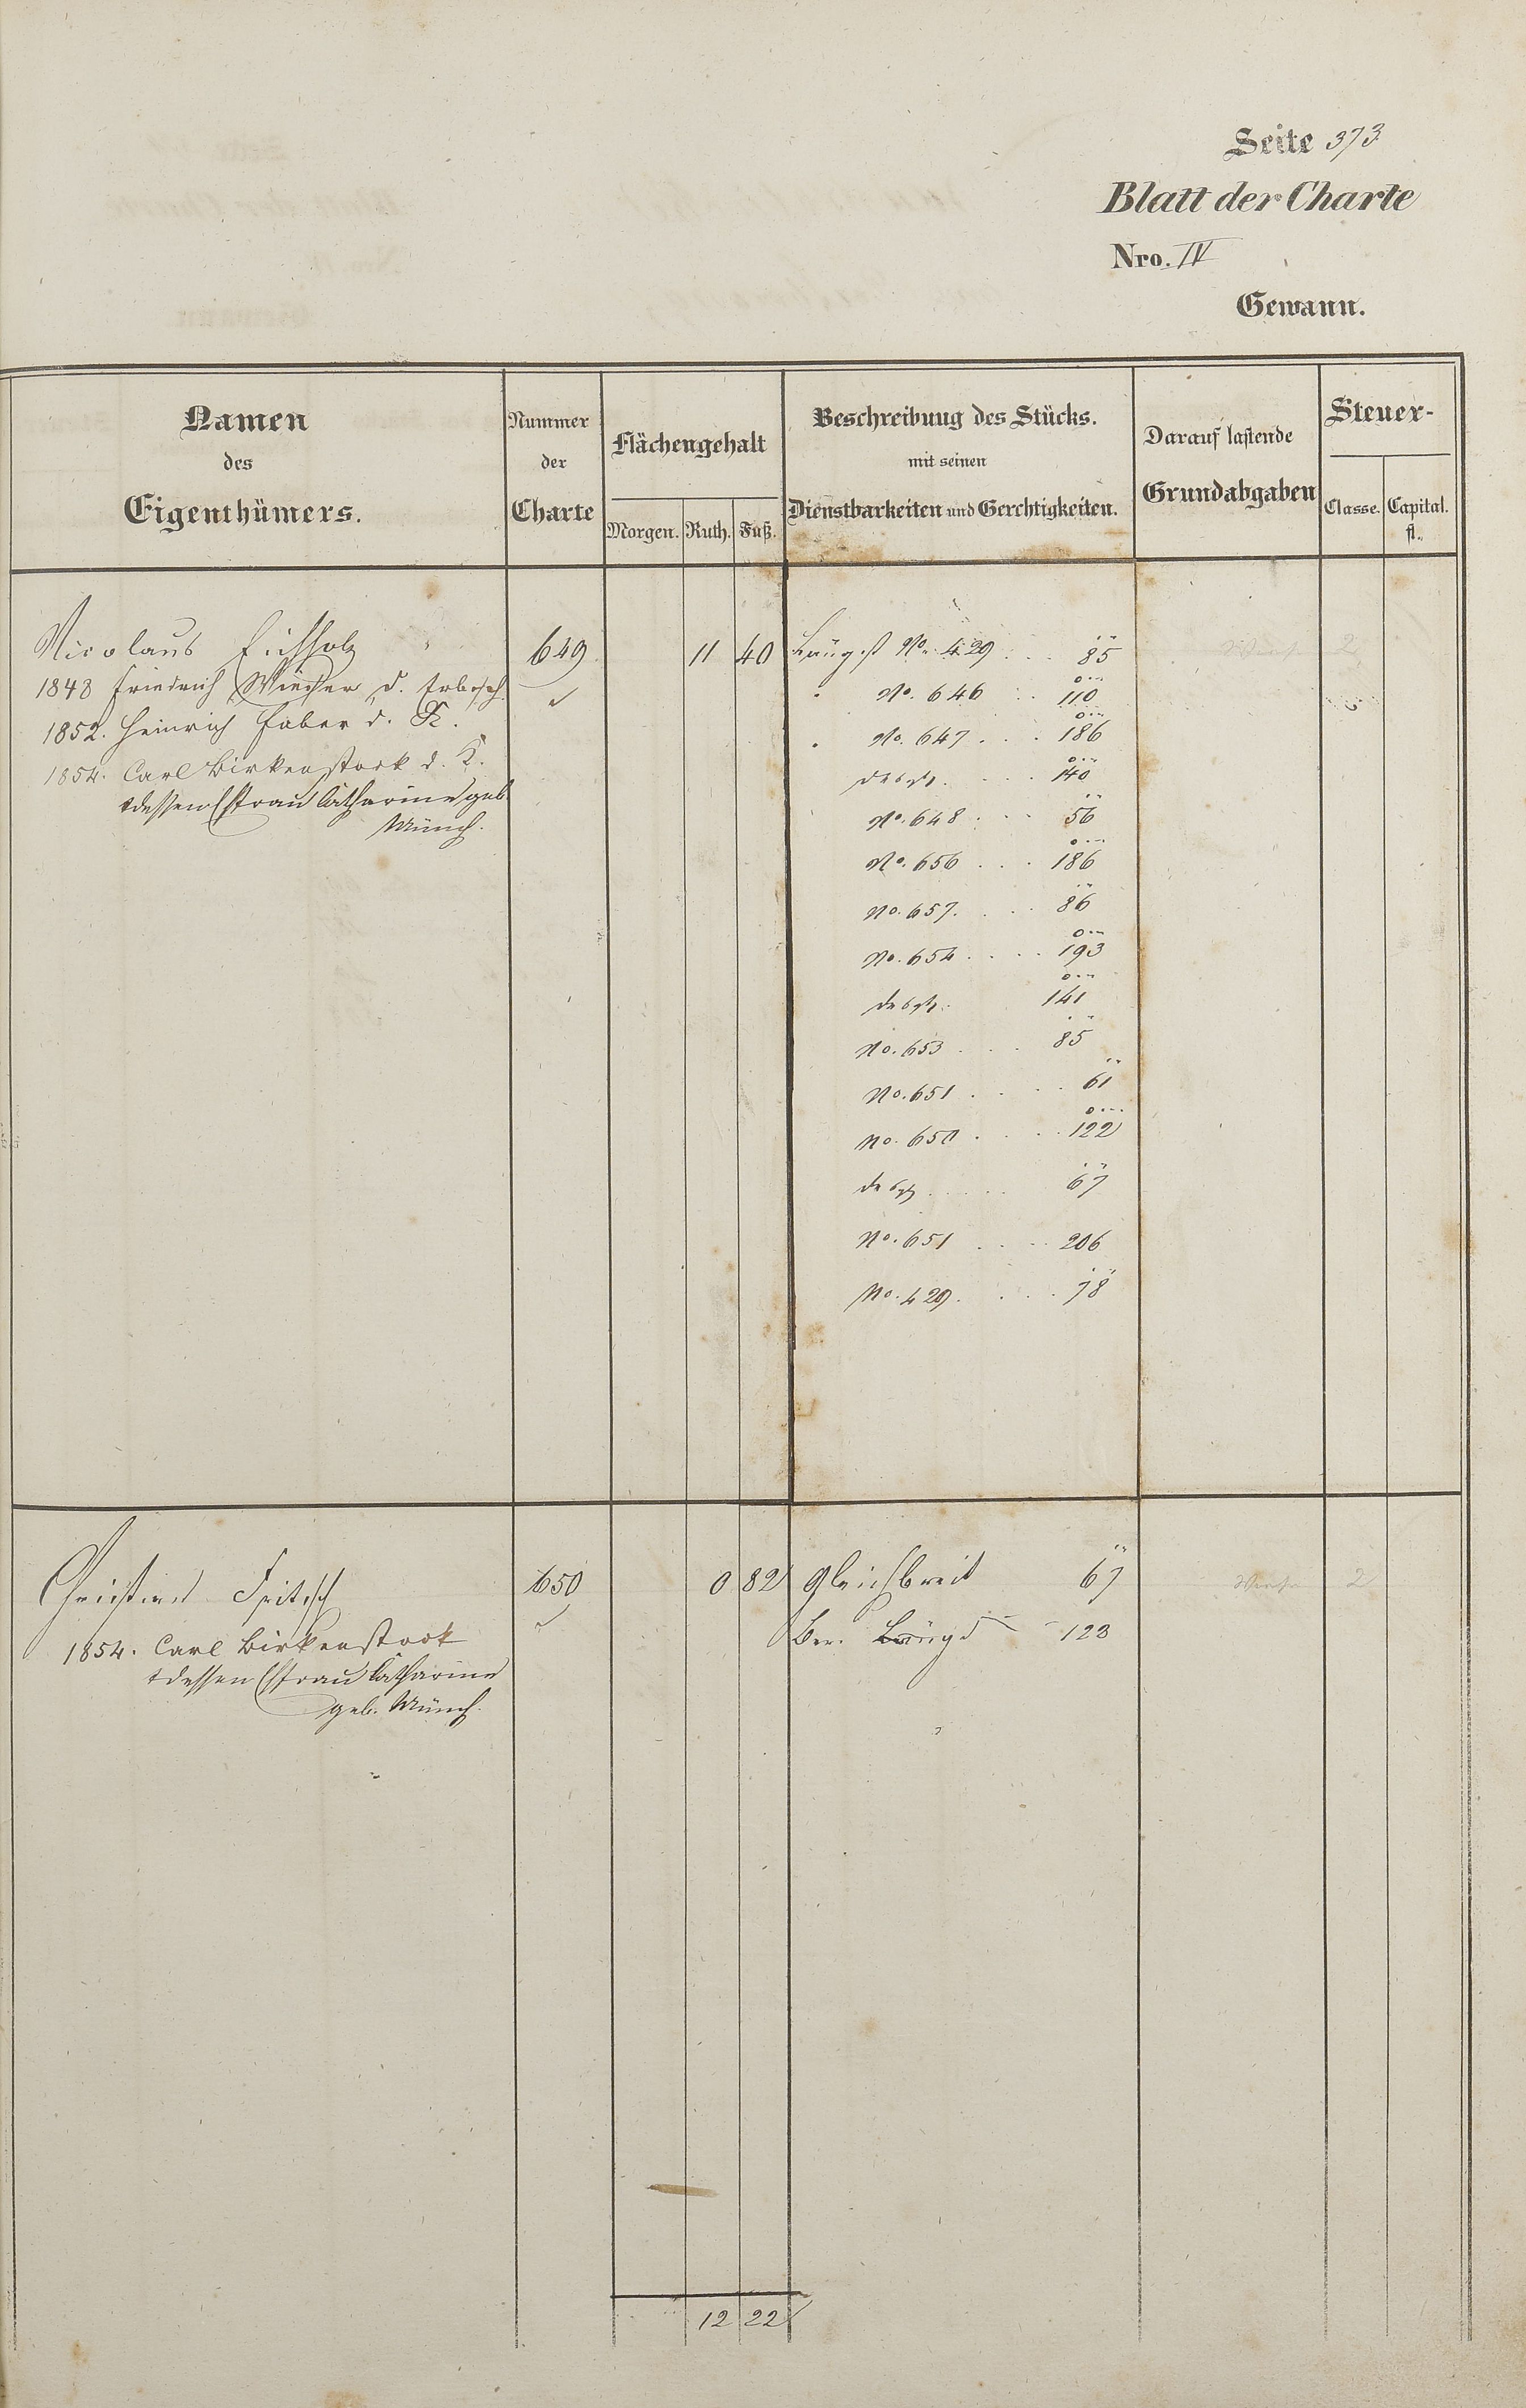 Seite 373
Blatt der Charte
Nro. IV
Gewann.
Namen
des
Eigenthümers.
Nummer
der
Charte
Flächengehalt
Morgen. Ruth. Fuß.
Beschreibung des Stücks.
mit seinen
Dienstbarkeiten und Gerchtigkeiten.
Darauf lastende
Grundabgaben
Steuer-
Classe. Capital.
fl.
Nicolaus Eichholz 649 11 40 Längst No. 429 . . . 85
1848 Friedrich d. No. 646 . . 110
1852. Heinrich Faber d. K. No. 647 . . . 186
1854. Carl Birkenstock d. K. desgl. . . . 140
& dessen Ehefrau Catharine geb.
Münch.
No. 648 . . . 56
No. 656 . . . 186
No. 657. . . . 86
No. 654 . . . . 193
desgl. 141
No. 653 . . . 85
No. 651 . . . . 61
No. 650 . . . . 122
desgl. . . . . 67
No. 651 . . . 206
No. 429. . . . 78
Christian Fritsch 650 0 82 Gleichbreit 67 Wiese 2
1854. Carl Birkenstock Längs 123
& dessen Ehefrau Catharine
geb. Münch.
12 22